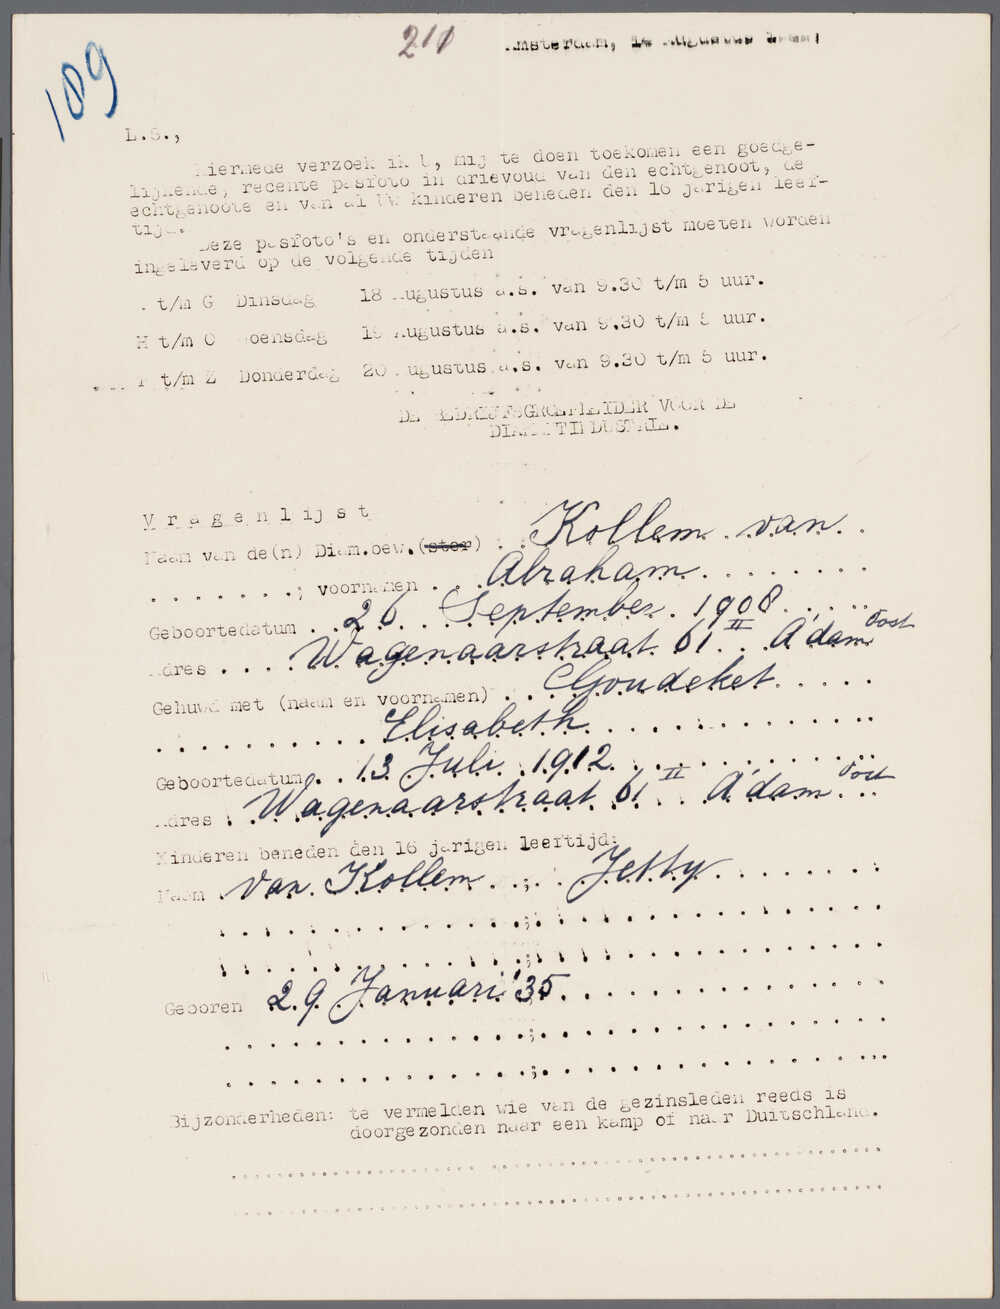 109
211
Amsterdam, 14 Augustus
L.S.,
Hiermede verzoek ik U, mij te doen toekomen een goedge-
lijkende, recente pasfoto in drievoud van den echtgenoot, de
echtgenoote en van al Uw kinderen beneden den 16 jarigen leef-
tijd.
Deze pasfoto's en onderstaande vragenlijst moeten worden
ingeleverd op de volgende tijden
t/m G Dinsdag 18 Augustus a.s. van 9.30 t/m 5 uur.
H t/m O Woensdag 19 Augustus a.s. van 9.30 t/m 5 uur.
P t/m Z Donderdag 20 Augustus a.s. van 9.30 t/m 5 uur.
DE BEDRIJFSGROEPLEIDER VOOR DE
DIAMANTINDUSTRIE.
Vragenlijst
Naam van de(n) Diam.bew.(ster) . . Kollem van . .
. . . . . . .; voornamen . . . Abraham . . . . . . . .
Geboortedatum . . 26 September 1908 . . . . .
Adres . . . . Wagenaarstraat 61 II . . A'dam Oost
Gehuwd met (naam en voornamen) . . Goudeket . . . . .
. . . . . . . . . . Elisabeth . . . . . . . . . . . .
Geboortedatum . . 13 Juli 1912 . . . . . . . . . . .
Adres . Wagenaarstraat 61 II . . A'dam Oost . .
Kinderen beneden den 16 jarigen leeftijd:
Naam . van Kollem . . ; . . Jetty . . . . . . . .
. . . . . . . . . . . . . ; . . . . . . . . . . . . . .
. . . . . . . . . . . . . ; . . . . . . . . . . . . . .
Geboren 29 Januari '35 . . . . . . . . . . . . . .
. . . . . . . . . . . . . ; . . . . . . . . . . . . . .
. . . . . . . . . . . . . ; . . . . . . . . . . . . . .
Bijzonderheden: te vermelden wie van de gezinsleden reeds is
doorgezonden naar een kamp of naar Duitschland.